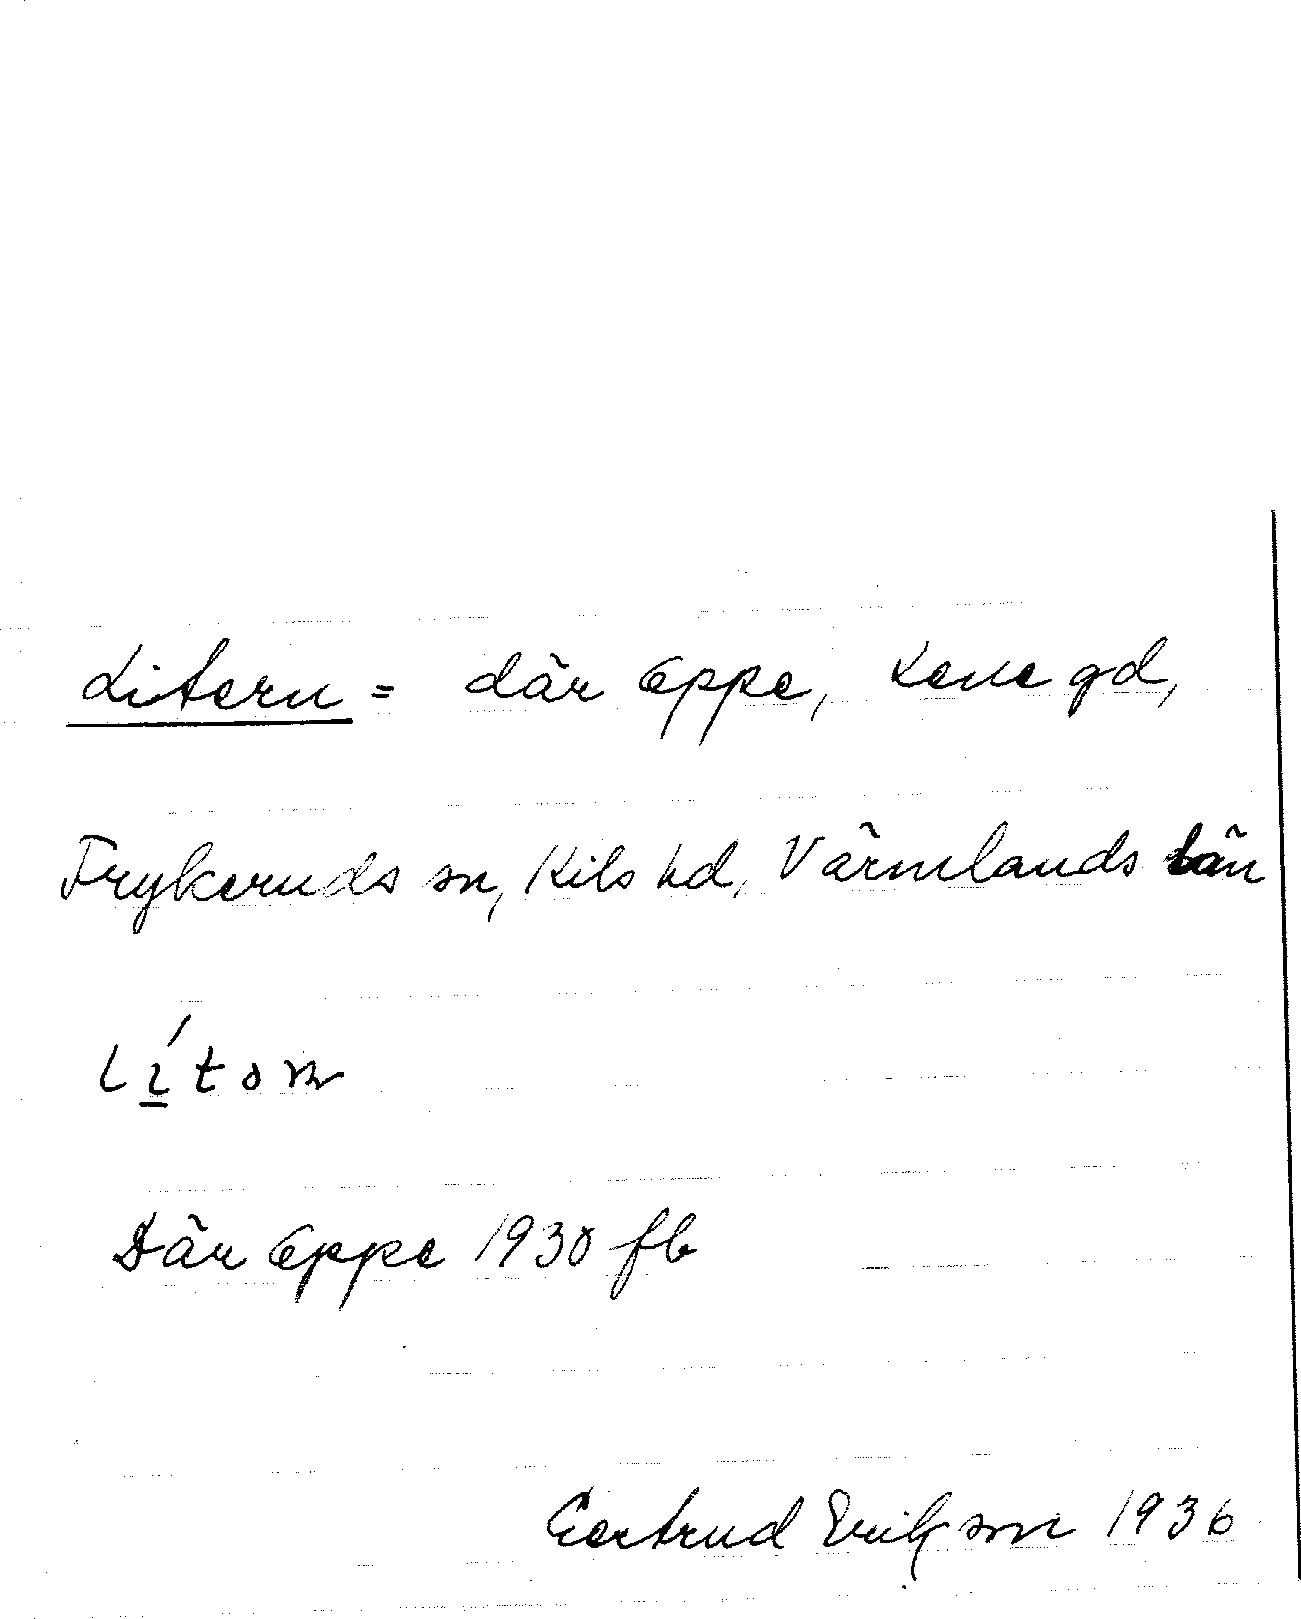 Litern = där Oppe, Lene gd,
Frykeruds sn, Kils hd, Värmlands län
Där Oppe 1930 fb
Gertrud Erikson 1936